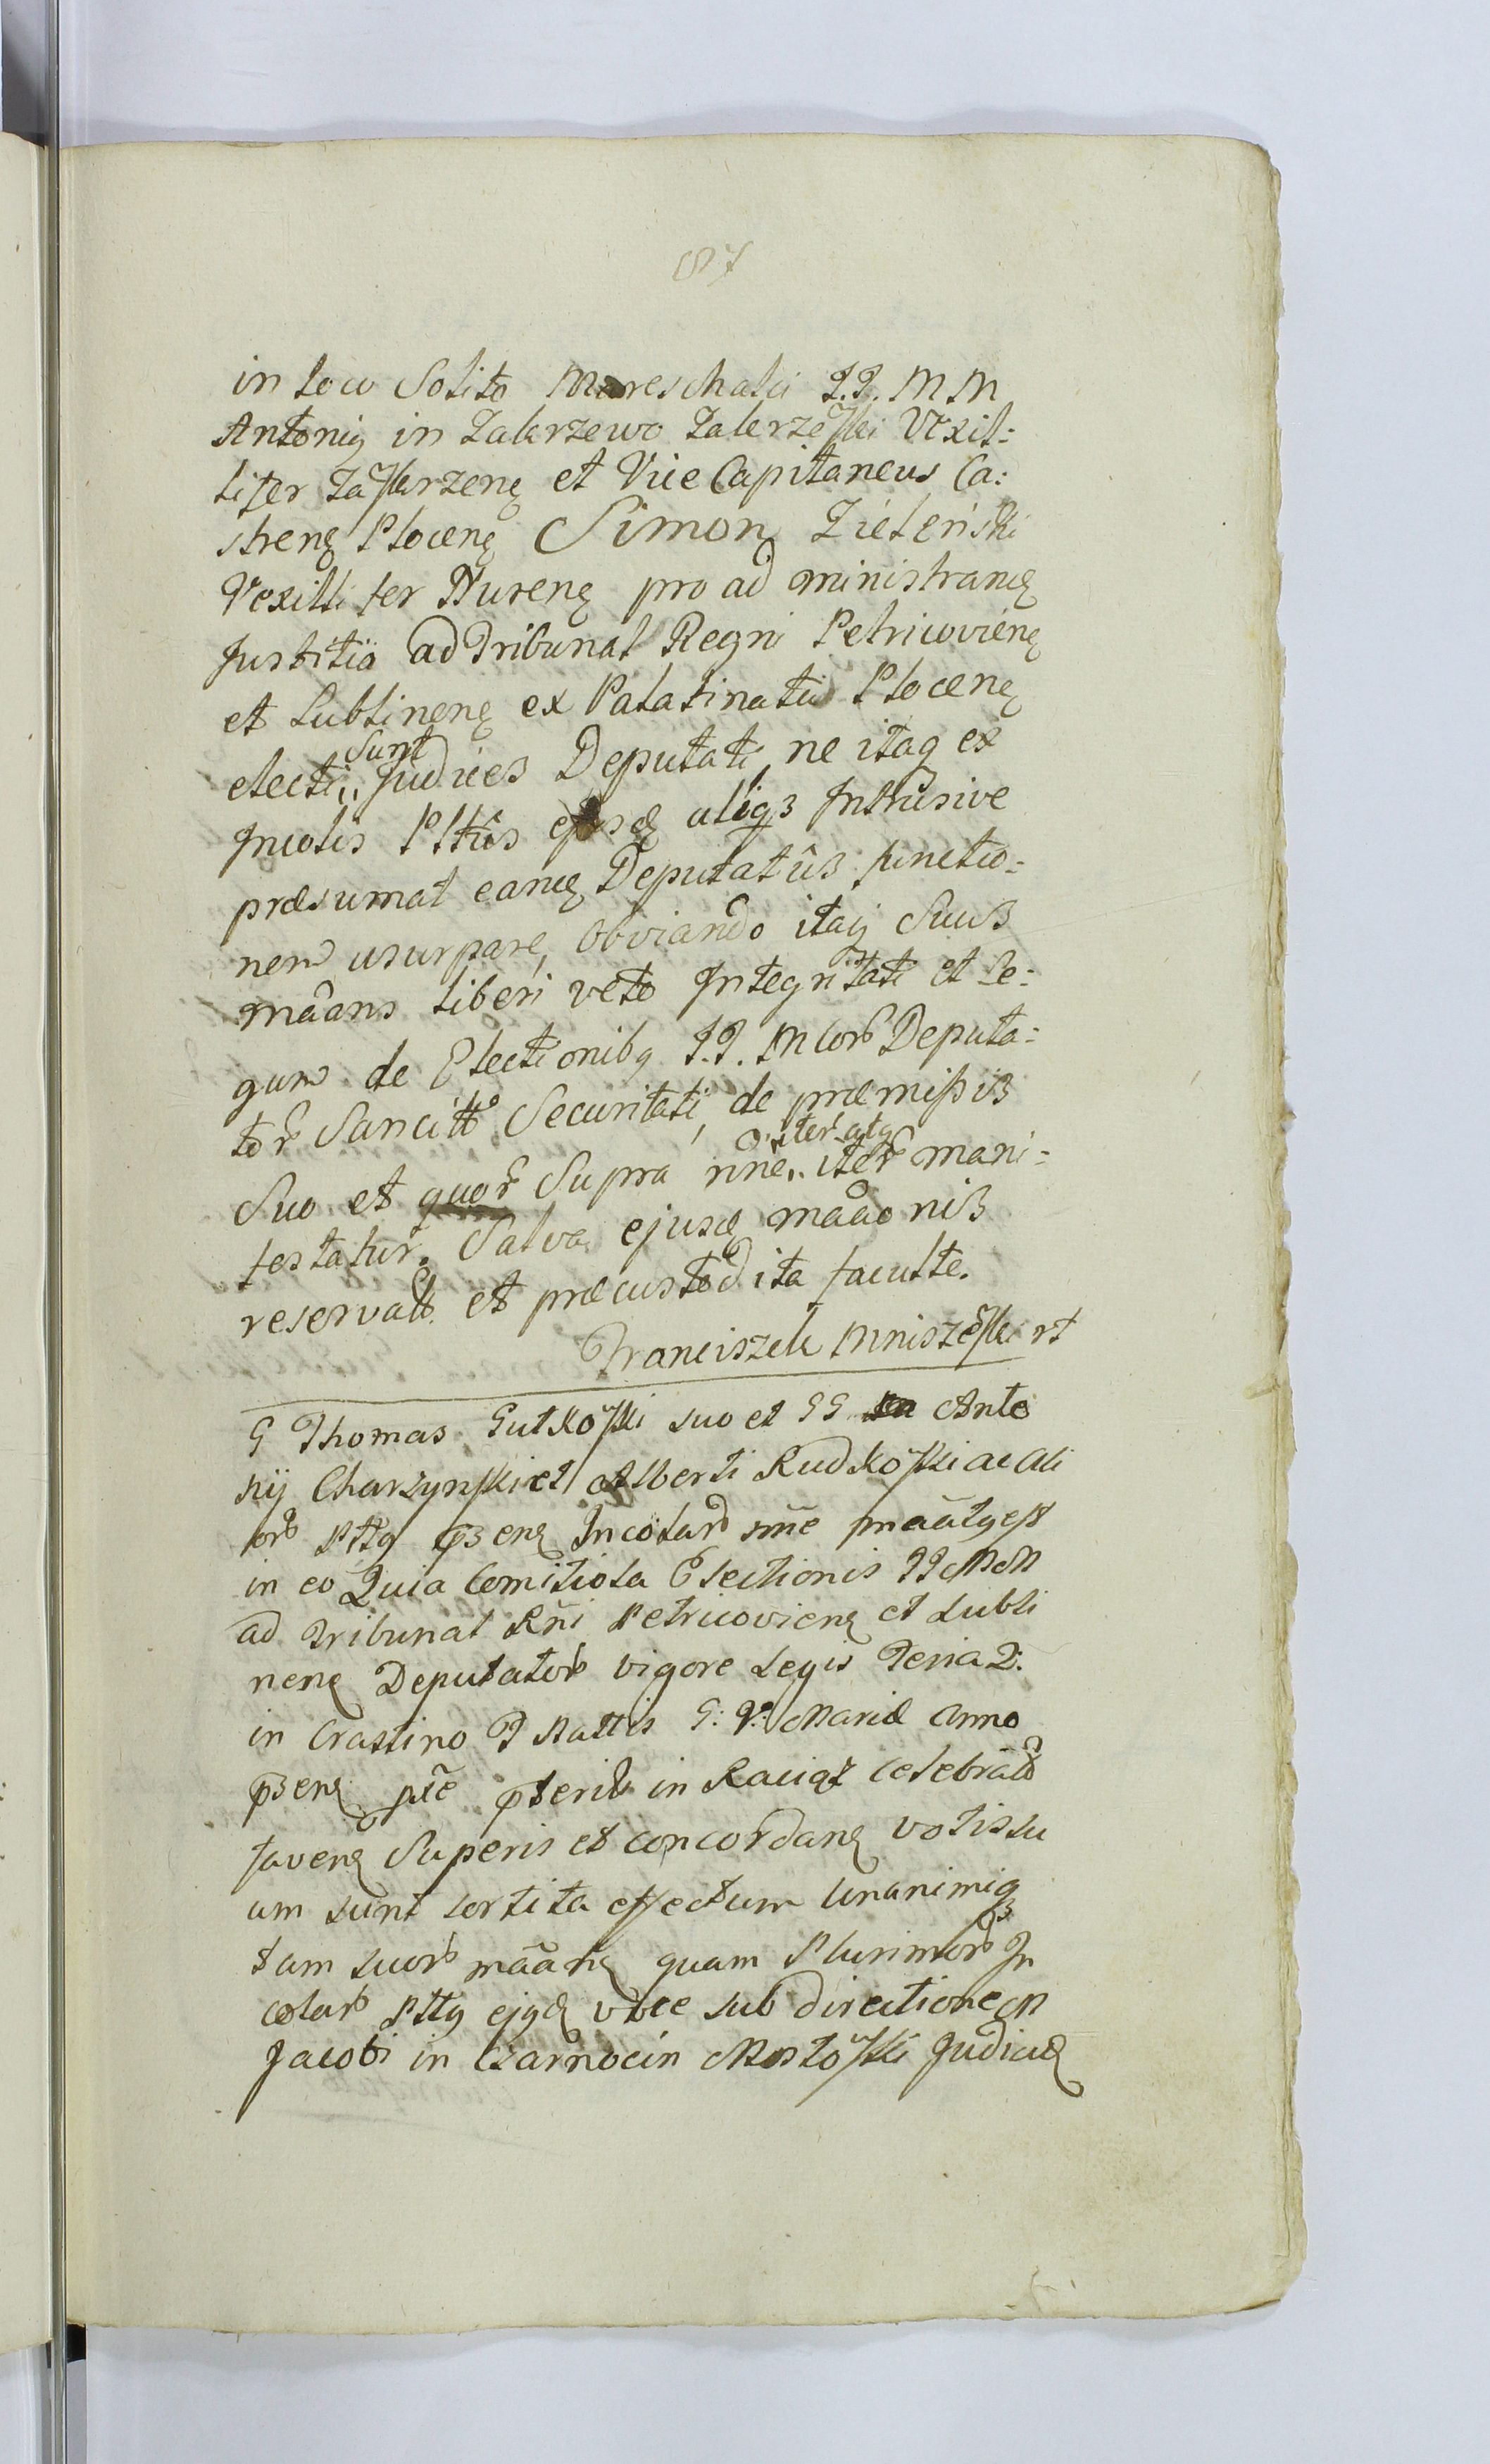 187
in loco Solito Mareschalci I.I. M M
Antonig in Zakrzewo Zakrzẽski Vexil:
lifer Zãskrzenę et Vice Capitaneus Ca:
strenę Plocenę Simon Zielenski
Vexilli fer Nurenę pro ad ministrandę
Justitiã ad Tribunal Regni Petricovienę
et Lublinenę ex Palatinatu Plocenę
electi,, Sunt Judices Deputati, ne itaq ex
Incolis Plttûs ejusdę aliq3 Intrusive
præsumat eandę Deputatûs functio=
nem usurpare, Obviando itaq Suus
mâans liberi veto Integritati et Le=
gum de Electionibg I.I. M lorb Deputa=
tor Sancitt Securitati, de præmissis
Suo et quor Supra nne,, citer atq iter mani=
festatur. Salva ejusdę mâaonis
reservatt et præcustodita facultte.
Franciszek Mniszẽski rt
G Thomas Gutkõski suo et GG Anto
nij Charzynski et Alberti Rudkõski ac ali
orb Pttg p3enę Incolarb nne mâatg est
in eo Quia Comitiola Electionis II MM
ad Tribunal Rni Petricovienę et Lubli
nenę Deputatorb vigore Legis Feria 2.
in Crastino F Nattis G: V: Mariæ Anno
p3enę pte pterit in Raciąż celebratt
favenę Superis et concordanę votis su
um sunt sortita effectum Unanimiq3
tam suorb mâanę quam Plurimorb In
colarb Pttg ejgdę voce sub directione M
Jacobi in Czarnocin Mostõski Judicię